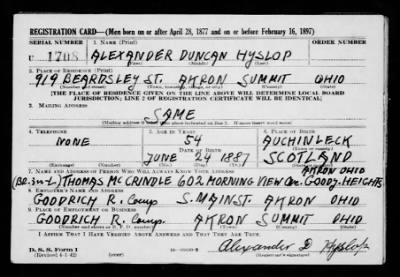 REGISTRATION CARD—(Men born on or after April 28, 1877 and on or before February 16, 1897)
SERIAL NUMBER 1. NAME (Print)
U 1708 ALEXANDER DUNCAN HYSLOP
(First) (Middle) (Last)
2. PLACE OF RESIDENCE (Print)
919 BEARDSLEY ST. AKRON SUMMIT OHIO
(Number and street) (Town, township, village, or city) (County) (State)
[THE PLACE OF RESIDENCE GIVEN ON THE LINE ABOVE WILL DETERMINE LOCAL BOARD
JURISDICTION; LINE 2 OF REGISTRATION CERTIFICATE WILL BE IDENTICAL]
3. MAILING ADDRESS
SAME
4. TELEPHONE 5. AGE IN YEARS 6. PLACE OF BIRTH
NONE 54 AUCHINLECK
DATE OF BIRTH
JUNE 24 1887 SCOTLAND
7. NAME AND ADDRESS OF PERSON WHO WILL ALWAYS KNOW YOUR ADDRESS AKRON OHIO
(BR.-in-L) THOMAS MCCRINDLE 602 MORNING VIEW GOODY. HEIGHTS
8. EMPLOYER'S NAME AND ADDRESS
GOODRICH R. Comp. S. MAIN ST. AKRON OHIO
9. PLACE OF EMPLOYMENT OR BUSINESS
GOODRICH R. Comp. AKRON SUMMIT OHIO
(Number and street or R. F. D. number) (Town) (County) (State)
I AFFIRM THAT I HAVE VERIFIED ABOVE ANSWERS AND THAT THEY ARE TRUE.
D. S. S. Form 1
(Revised 4-1-42) Alexander D Hyslop